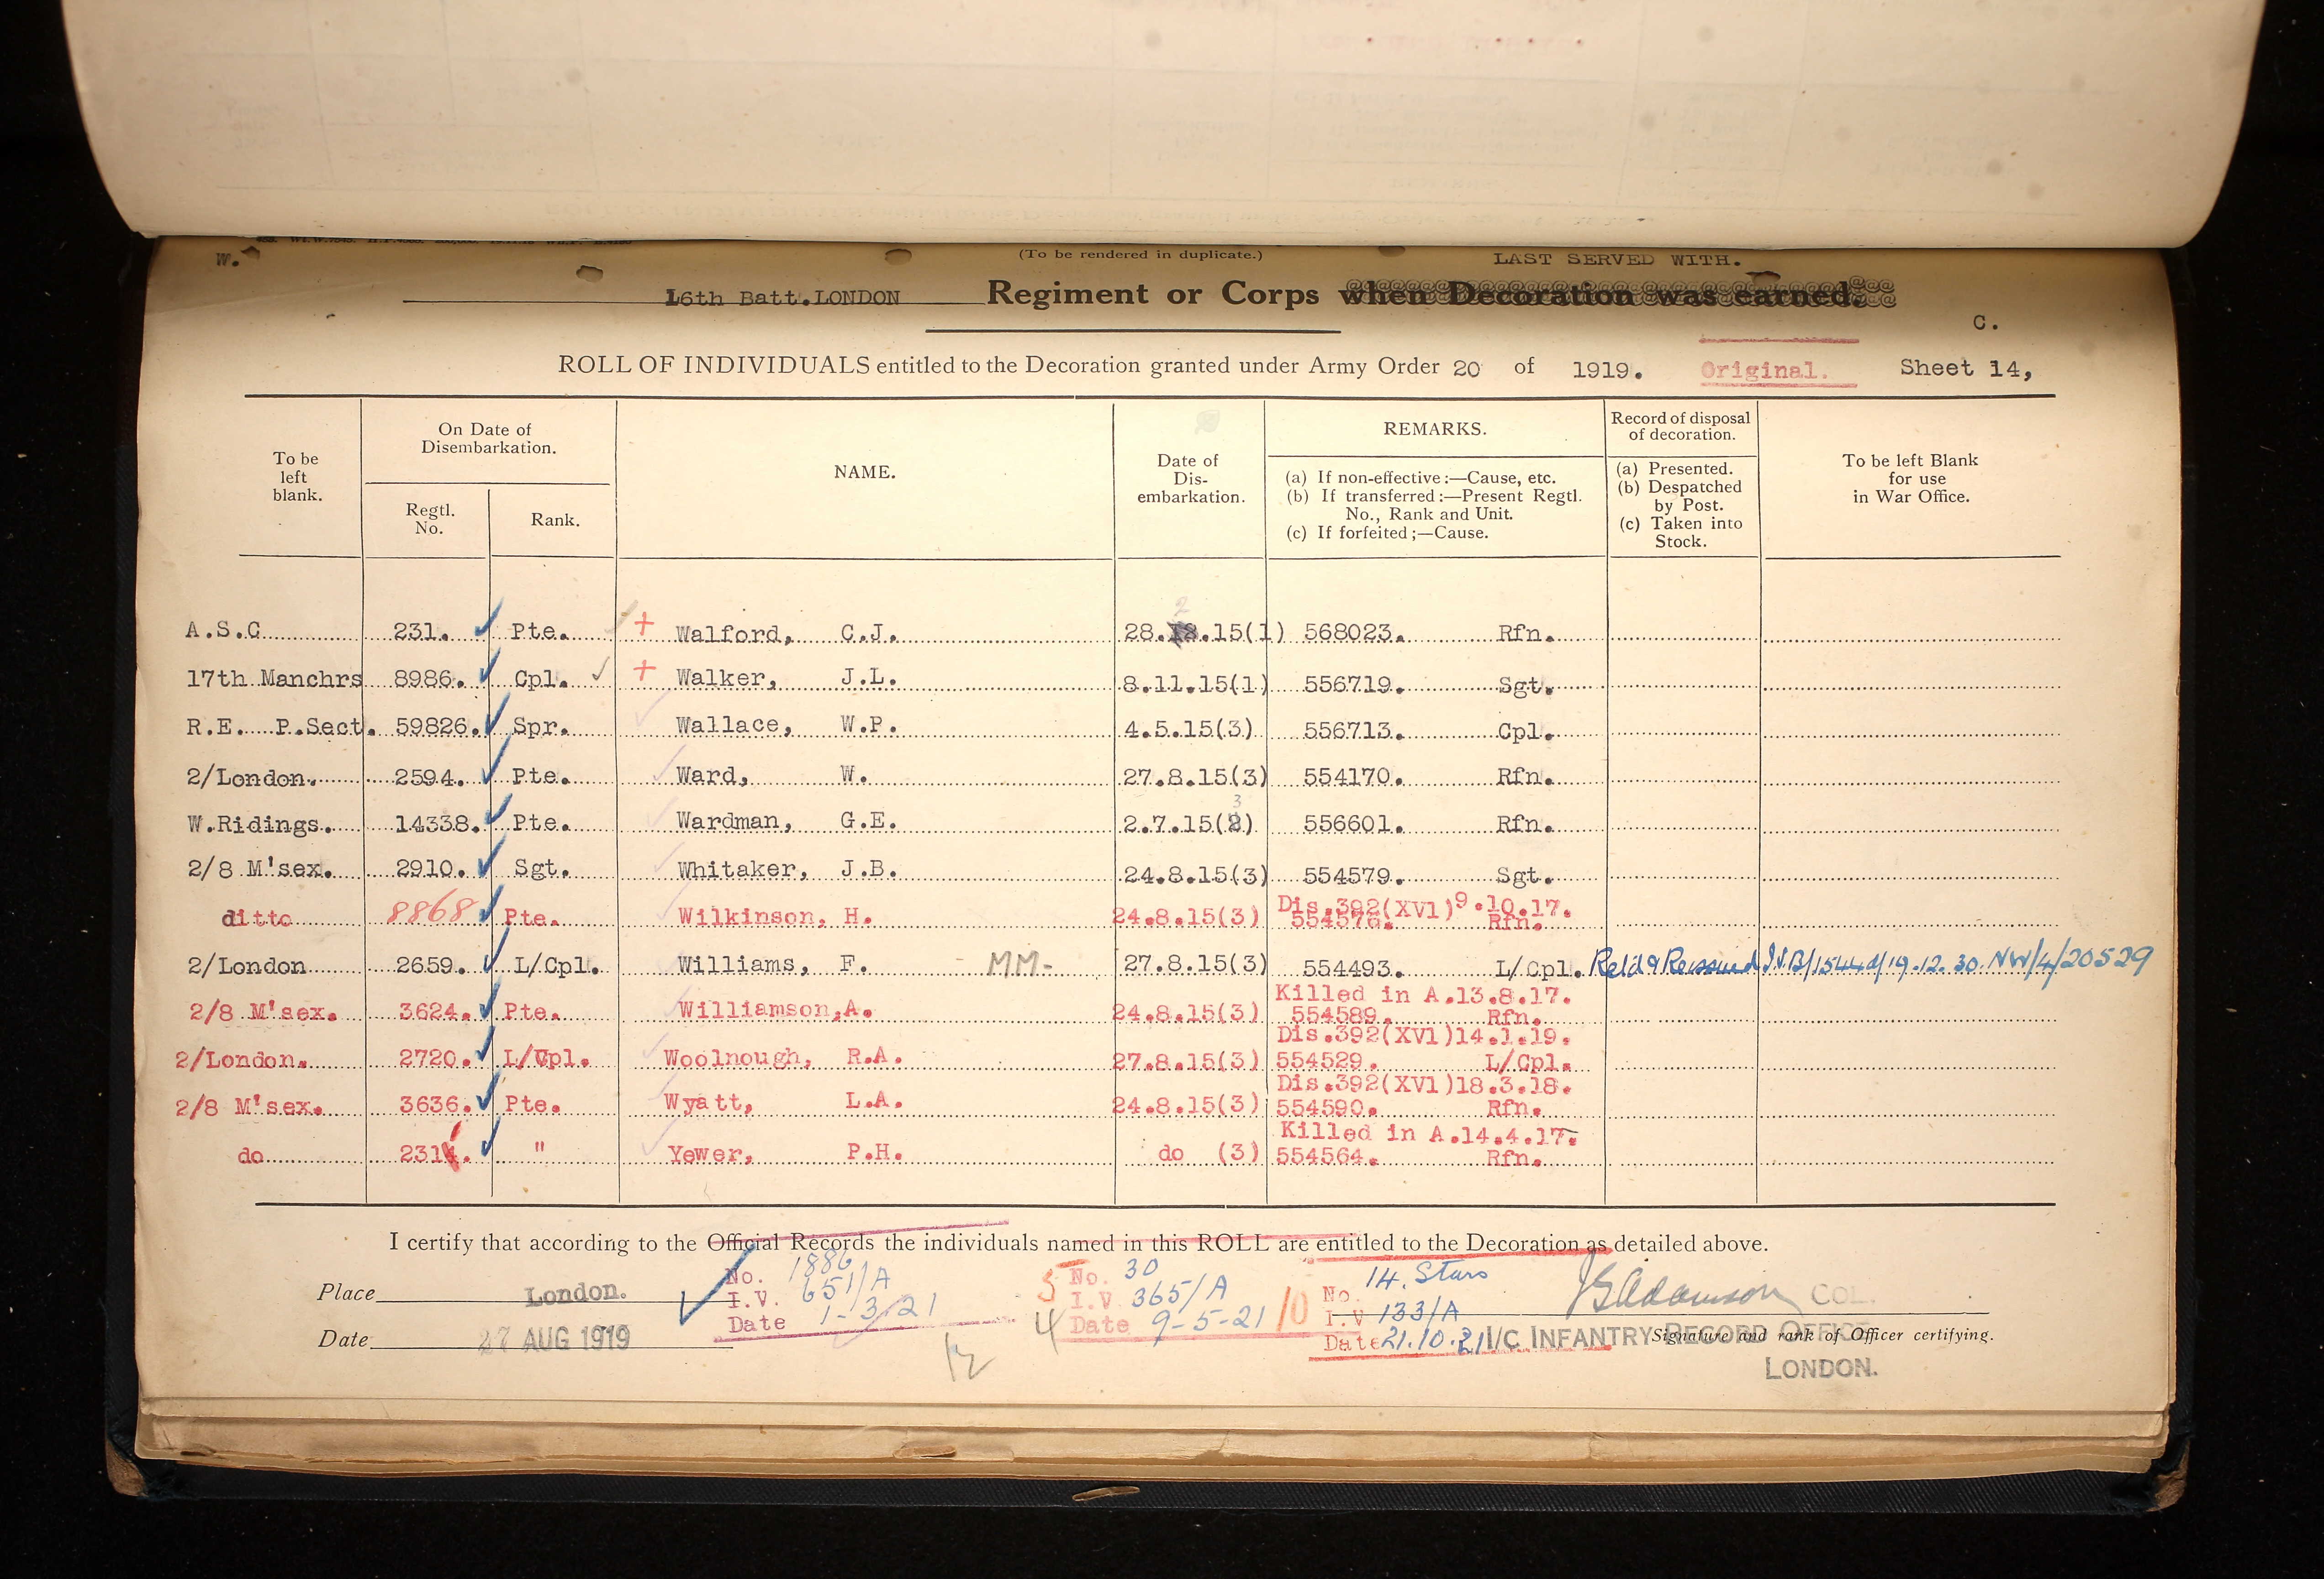 W.
(To be rendered in duplicate.)
LAST SERVED WITH.
16th Batt.LONDON Regiment or Corps when Decoration was earned.
C.
ROLL OF INDIVIDUALS entitled to the Decoration granted under Army Order 20 of 1919. Original. Sheet 14,
To be left blank.
On Date of Disembarkation.
Regtl. No.
Rank.
NAME.
Date of Dis-embarkation.
REMARKS.
(a) If non-effective:—Cause, etc.
(b) If transferred:—Present Regtl. No., Rank and Unit.
(c) If forfeited;—Cause.
Record of disposal of decoration.
(a) Presented.
(b) Despatched by Post.
(c) Taken into Stock.
To be left Blank for use in War Office.
A.S.C 231. Pte. + Walford, C.J. 28.2.15(1) 568023. Rfn.
17th Manchrs 8986. Cpl. + Walker, J.L. 8.11.15(1) 556719. Sgt.
R.E. P.Sect. 59826. Spr. Wallace, W.P. 4.5.15(3) 556713. Cpl.
2/London. 2594. Pte. Ward, W. 27.8.15(3) 554170. Rfn.
W.Ridings. 14338. Pte. Wardman, G.E. 2.7.15(3) 556601. Rfn.
2/8 M'sex. 2910. Sgt. Whitaker, J.B. 24.8.15(3) 554579. Sgt.
ditto 8868 Pte. Wilkinson, H. 24.8.15(3) Dis.392(XVl)9.10.17.
554576. Rfn.
2/London 2659. L/Cpl. Williams, F. MM- 27.8.15(3) 554493. L/Cpl. Retd & Reissued I.V.B/1544d/19.12.30. NW/4/20529
2/8 M'sex. 3624. Pte. Williamson,A. 24.8.15(3) Killed in A.13.8.17.
554589. Rfn.
2/London. 2720. L/Cpl. Woolnough, R.A. 27.8.15(3) Dis.392(XVl)14.1.19.
554529. L/Cpl.
2/8 M'sex. 3636. Pte. Wyatt, L.A. 24.8.15(3) Dis.392(XVl)18.3.18.
554590. Rfn.
do 231 " Yewer, P.H. do (3) Killed in A.14.4.17.
554564. Rfn.
I certify that according to the Official Records the individuals named in this ROLL are entitled to the Decoration as detailed above.
Place London.
Date 27 AUG 1919
No. 1886
I.V. 651/A
Date 1-3-21
12
5 No. 30
I.V 365/A
4 Date 9-5-21
10
No. 14. Stars
I.V 133/A
Date 21.10.21
JGAdamson COL.
I/C INFANTRY RECORD OFFICE
Signature and rank of Officer certifying.
LONDON.